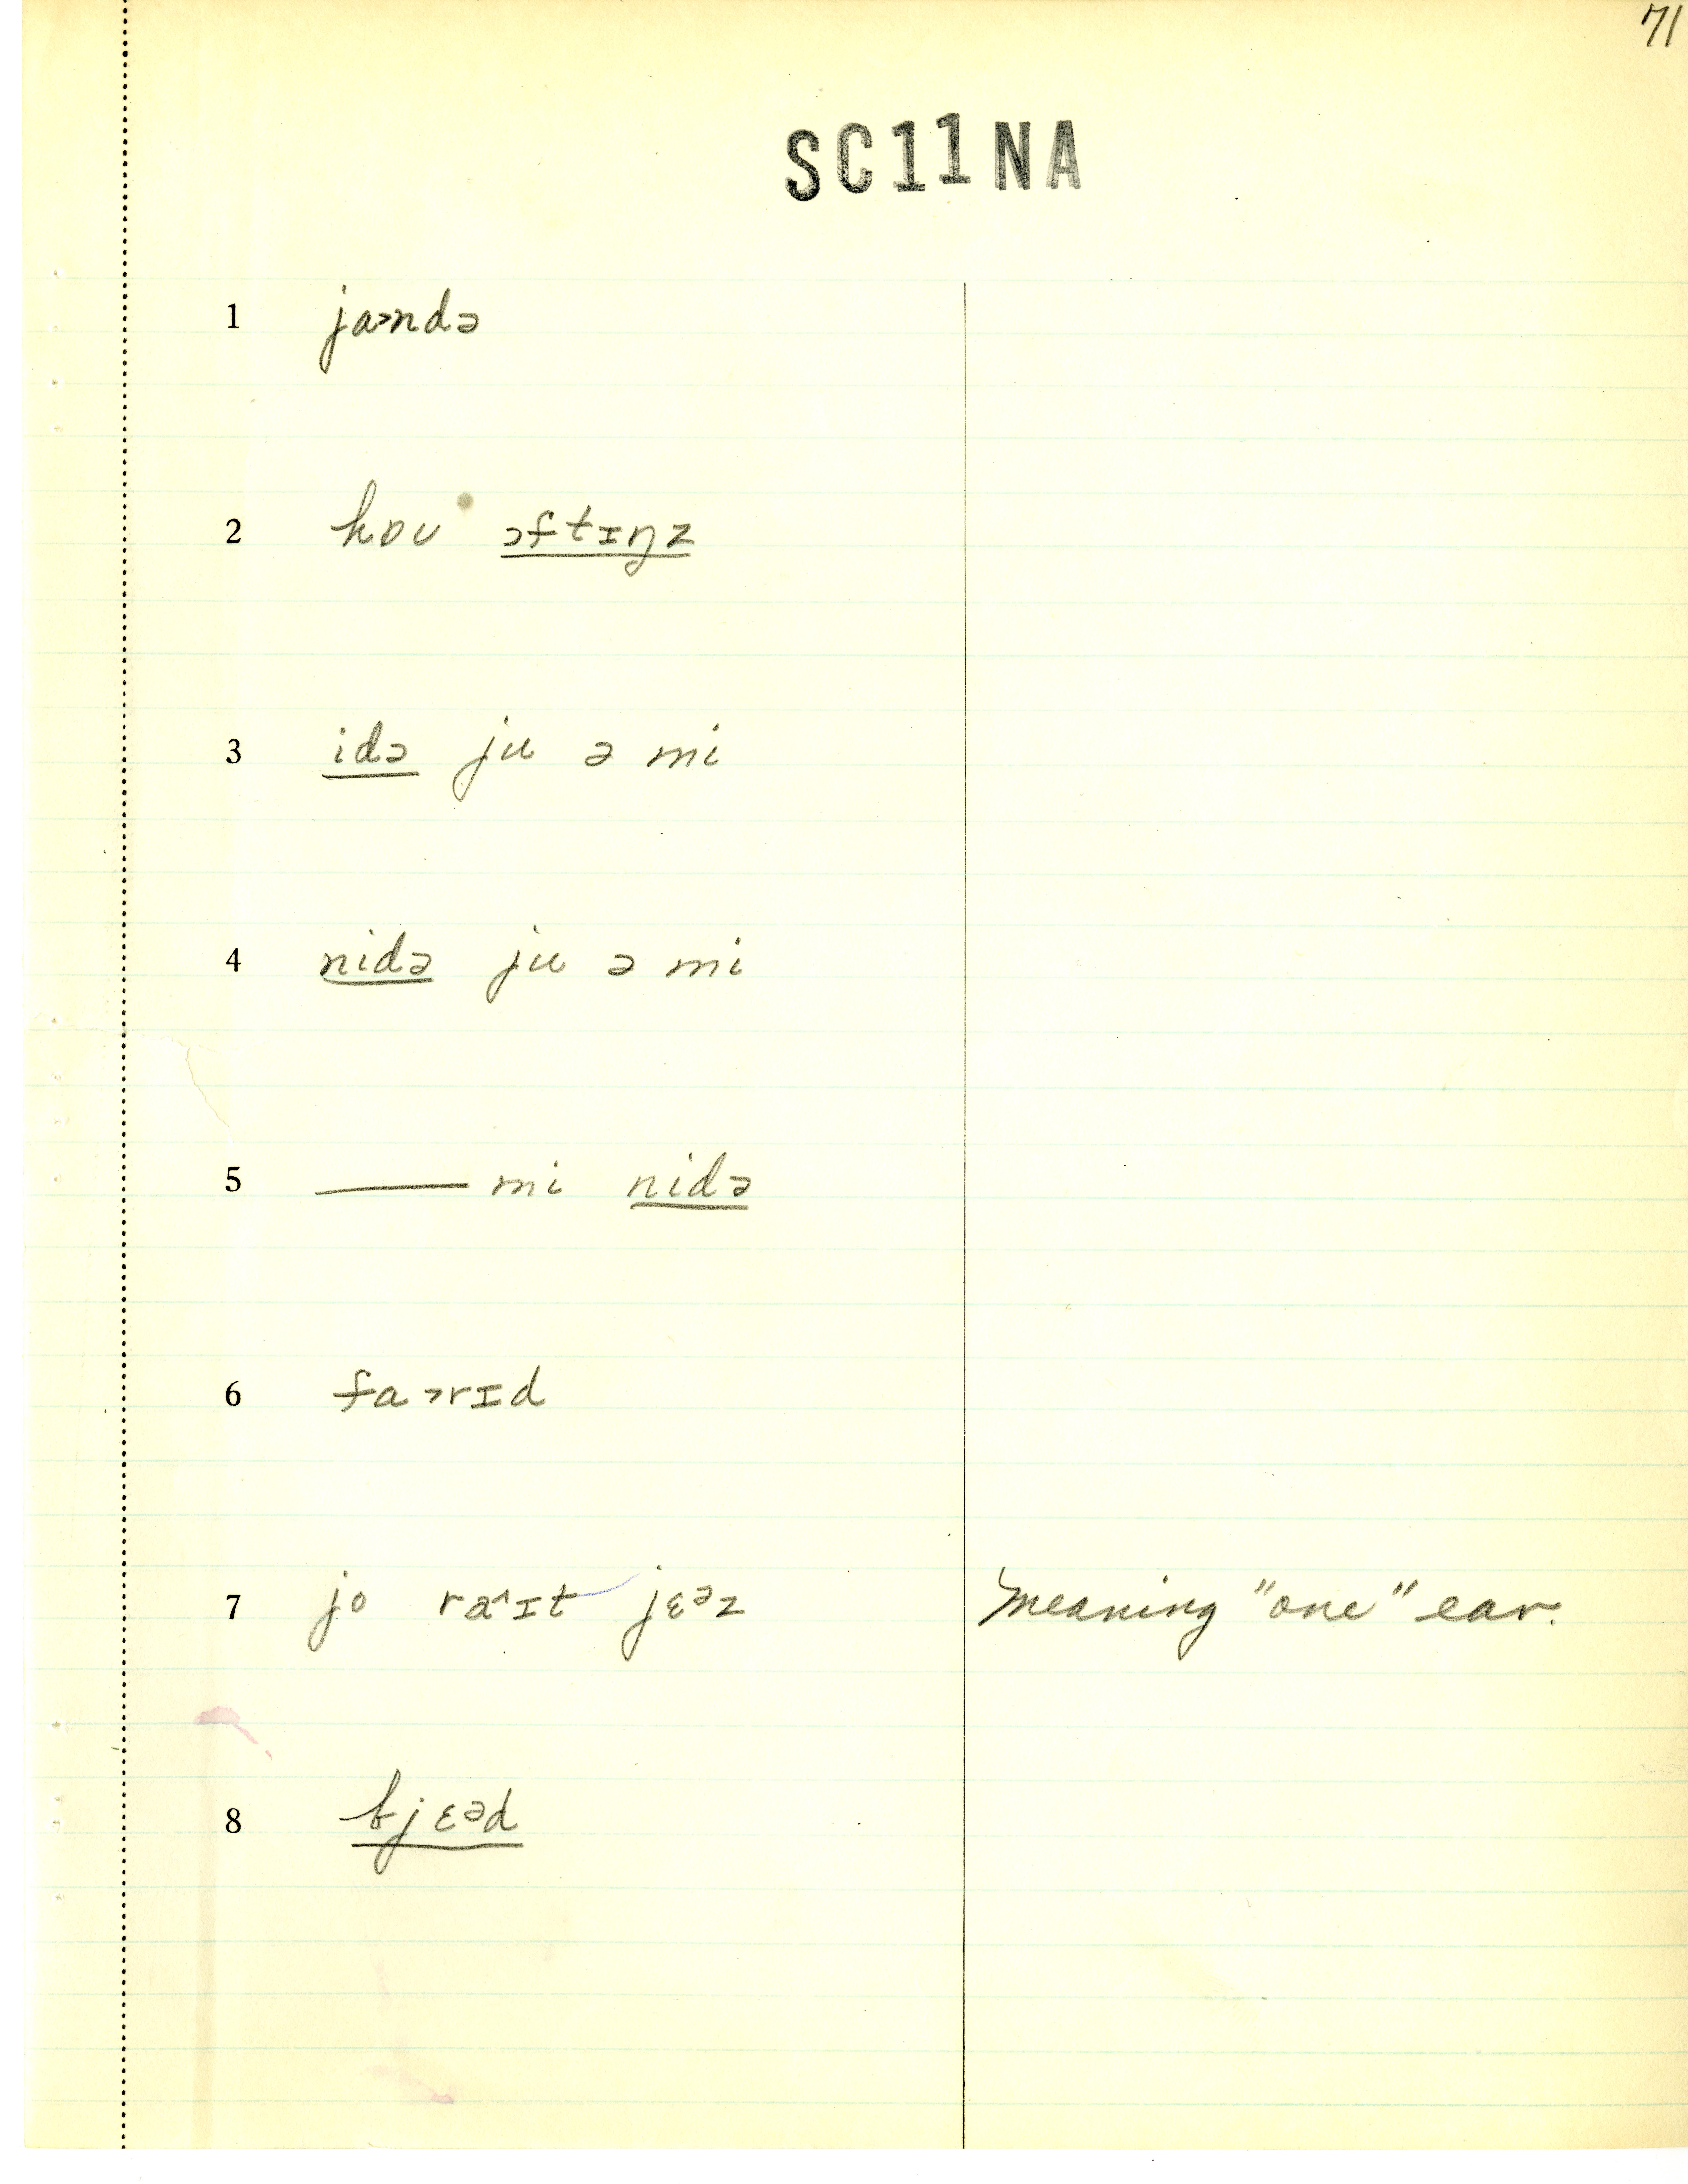 71
SC11NA
1 ja˃ndə
2 hɒʊ ɔftɪŋz
3 idə ju ə mi
4 nidə ju ə mi
5 ——— mi nidə
6 fa˃rɪd
7 jo ra^ɪt jɛᵊz Meaning "one" ear.
8 bjɛᵊd